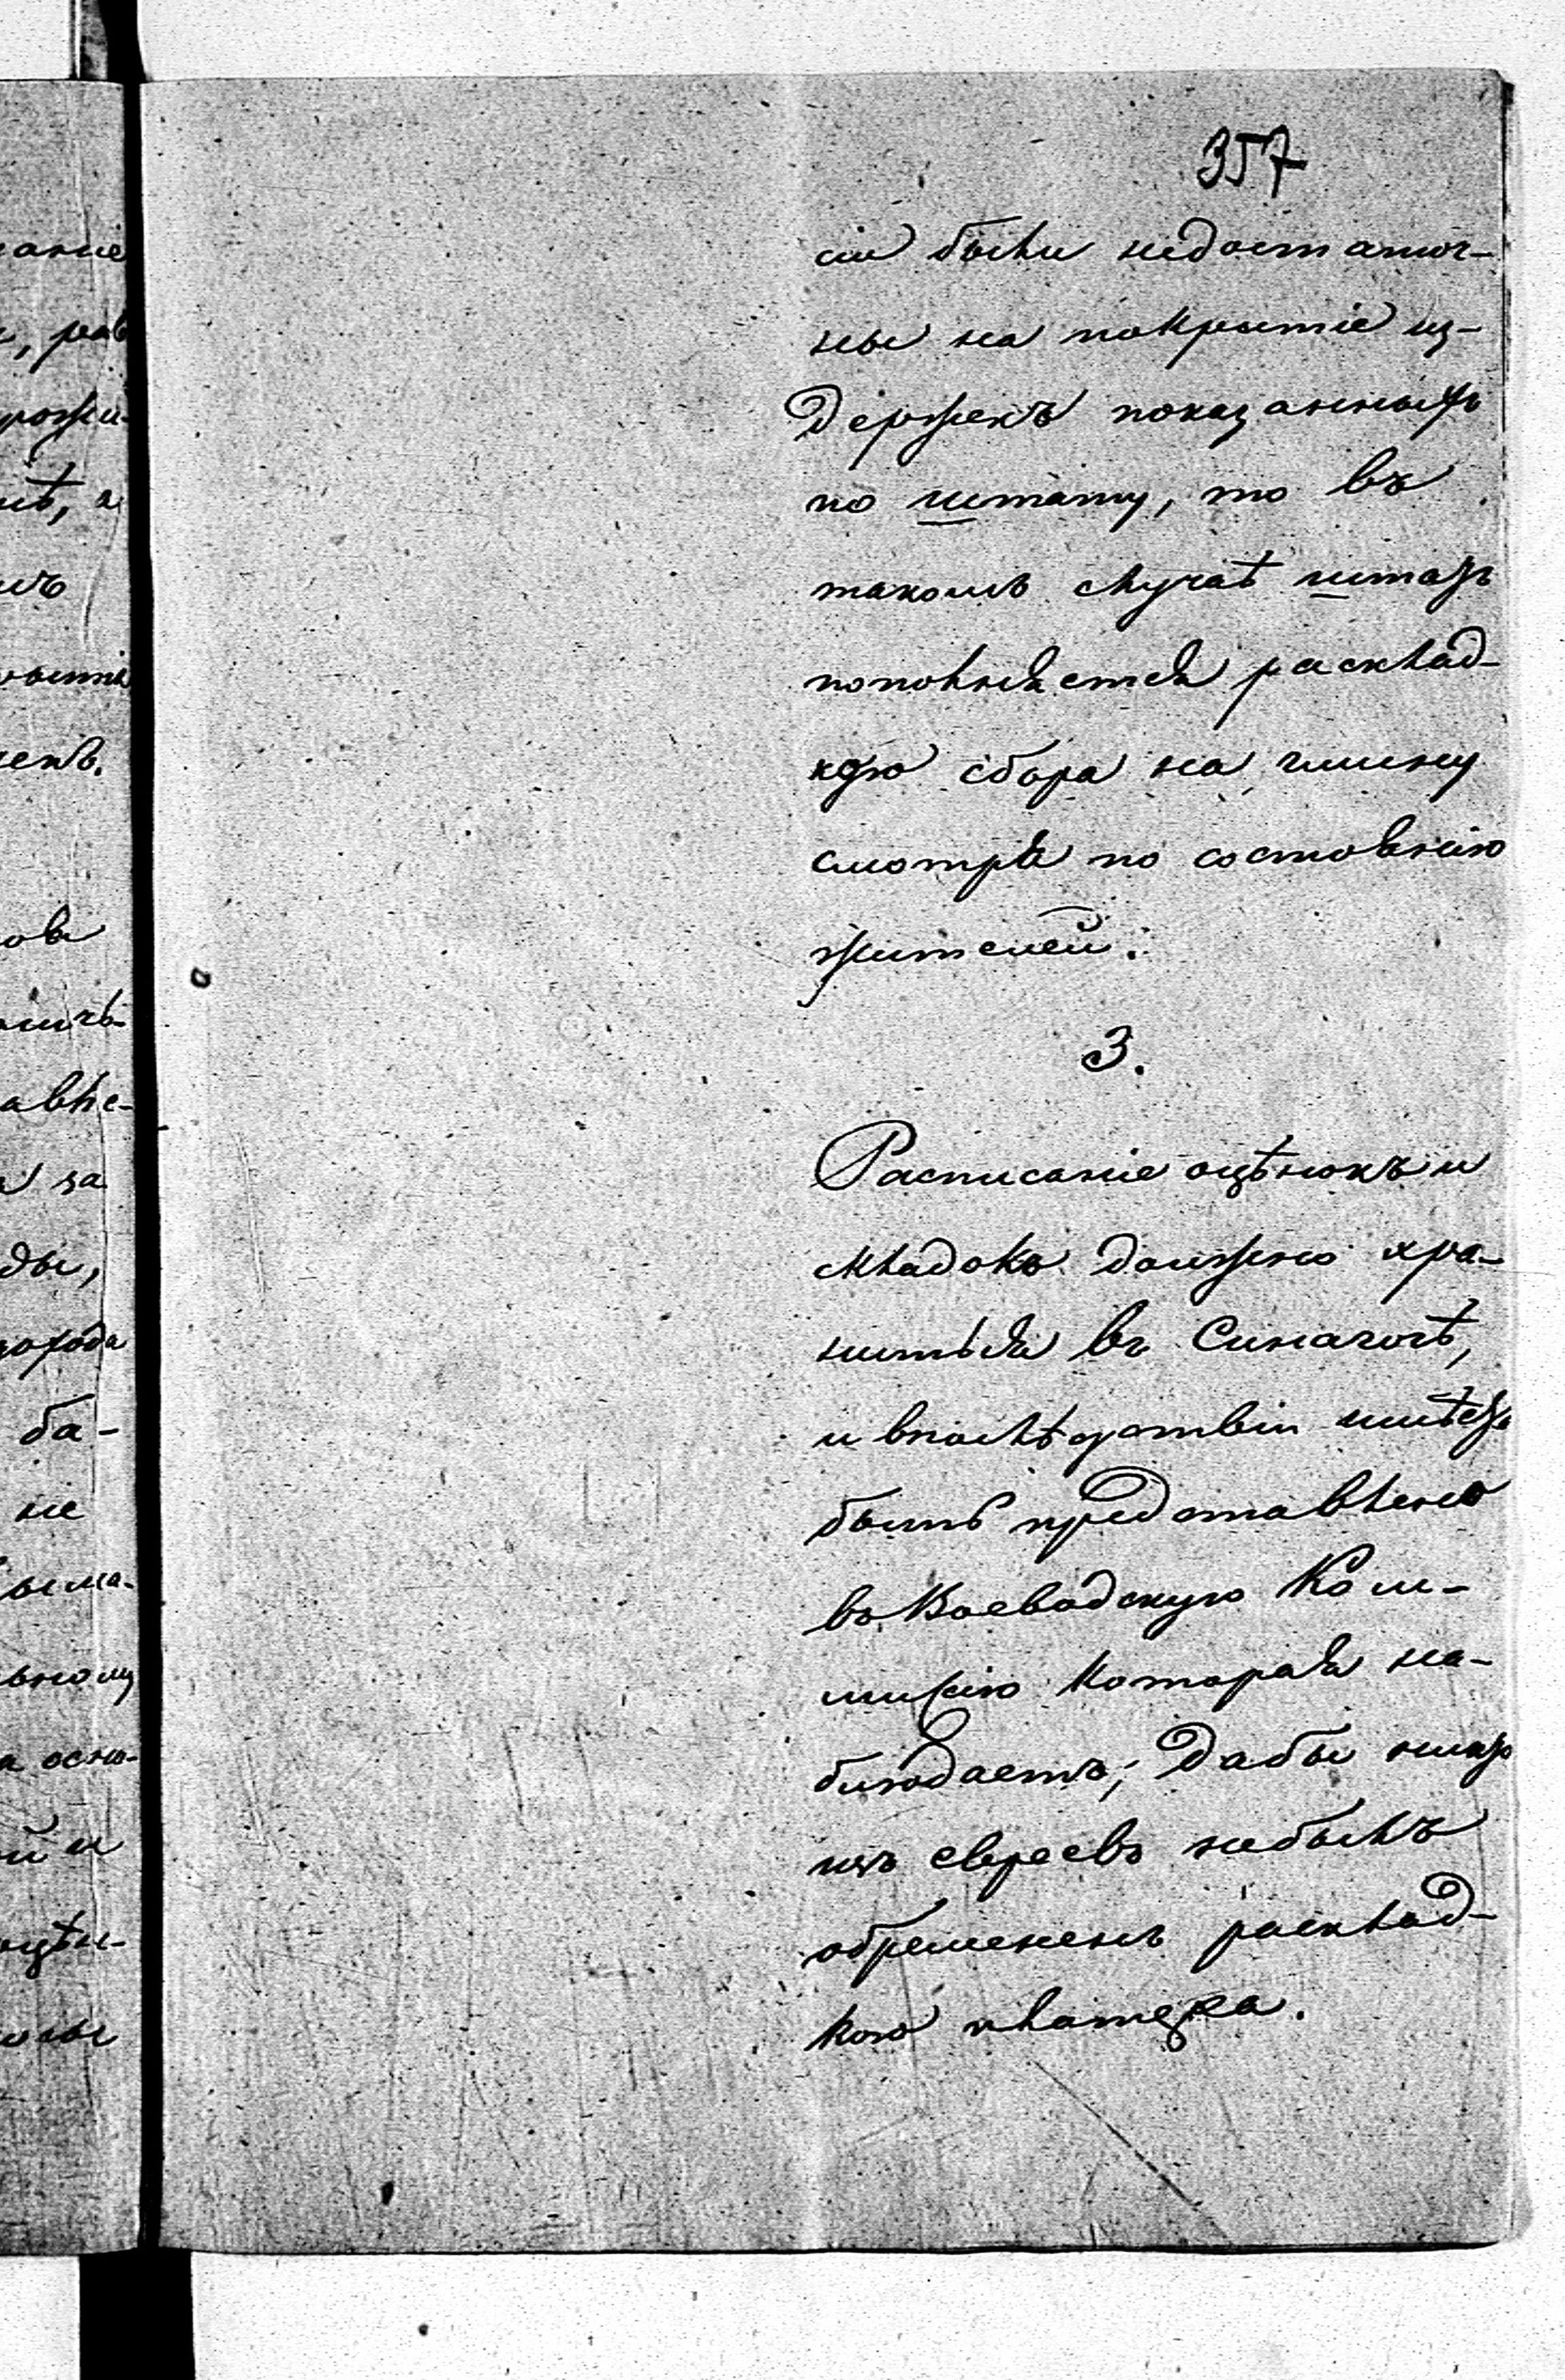 357
сіи были недостаточ-
ны на покрытіе из-
держекъ показанныхъ
по штату, то въ
такомъ случаѣ штатъ
пополняется расклад-
кою сбора на гмину
смотря по состоянію
жителей.
3.
Расписаніе оцѣнокъ и
складокъ должно хра-
ниться въ Синагогѣ,
и впослѣдствіи имѣетъ
быть представлено
въ Воеводскую Ком-
мисію которая на-
блюдаетъ, дабы никто
изъ евреевъ небылъ
обремененъ расклад-
кою платежа.